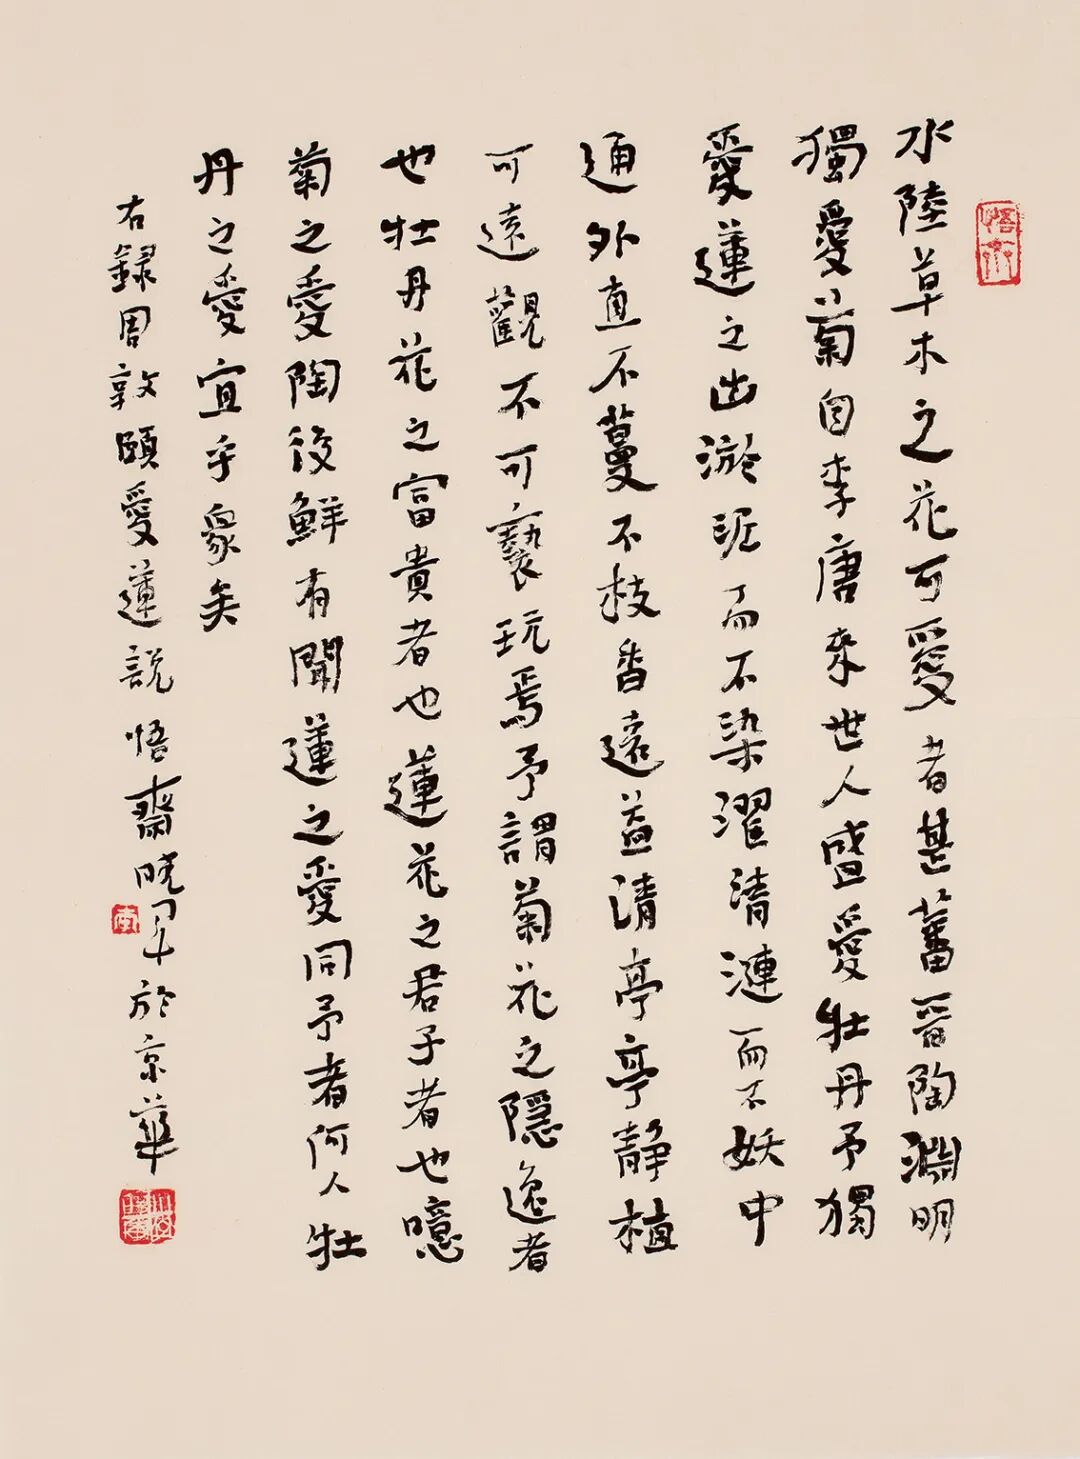 水陸草木之花可愛者甚蕃晉陶淵明
獨愛菊自李唐來世人盛愛牡丹予獨
愛蓮之出淤泥而不染濯清漣而不妖中
通外直不蔓不枝香遠益清亭亭靜植
可遠觀不可褻玩焉予謂菊花之隱逸者
也牡丹花之富貴者也蓮花之君子者也噫
菊之愛陶後鮮有聞蓮之愛同予者何人牡
丹之愛宜乎眾矣
右録周敦頤愛蓮說悟齋曉軍於京華
悟齋